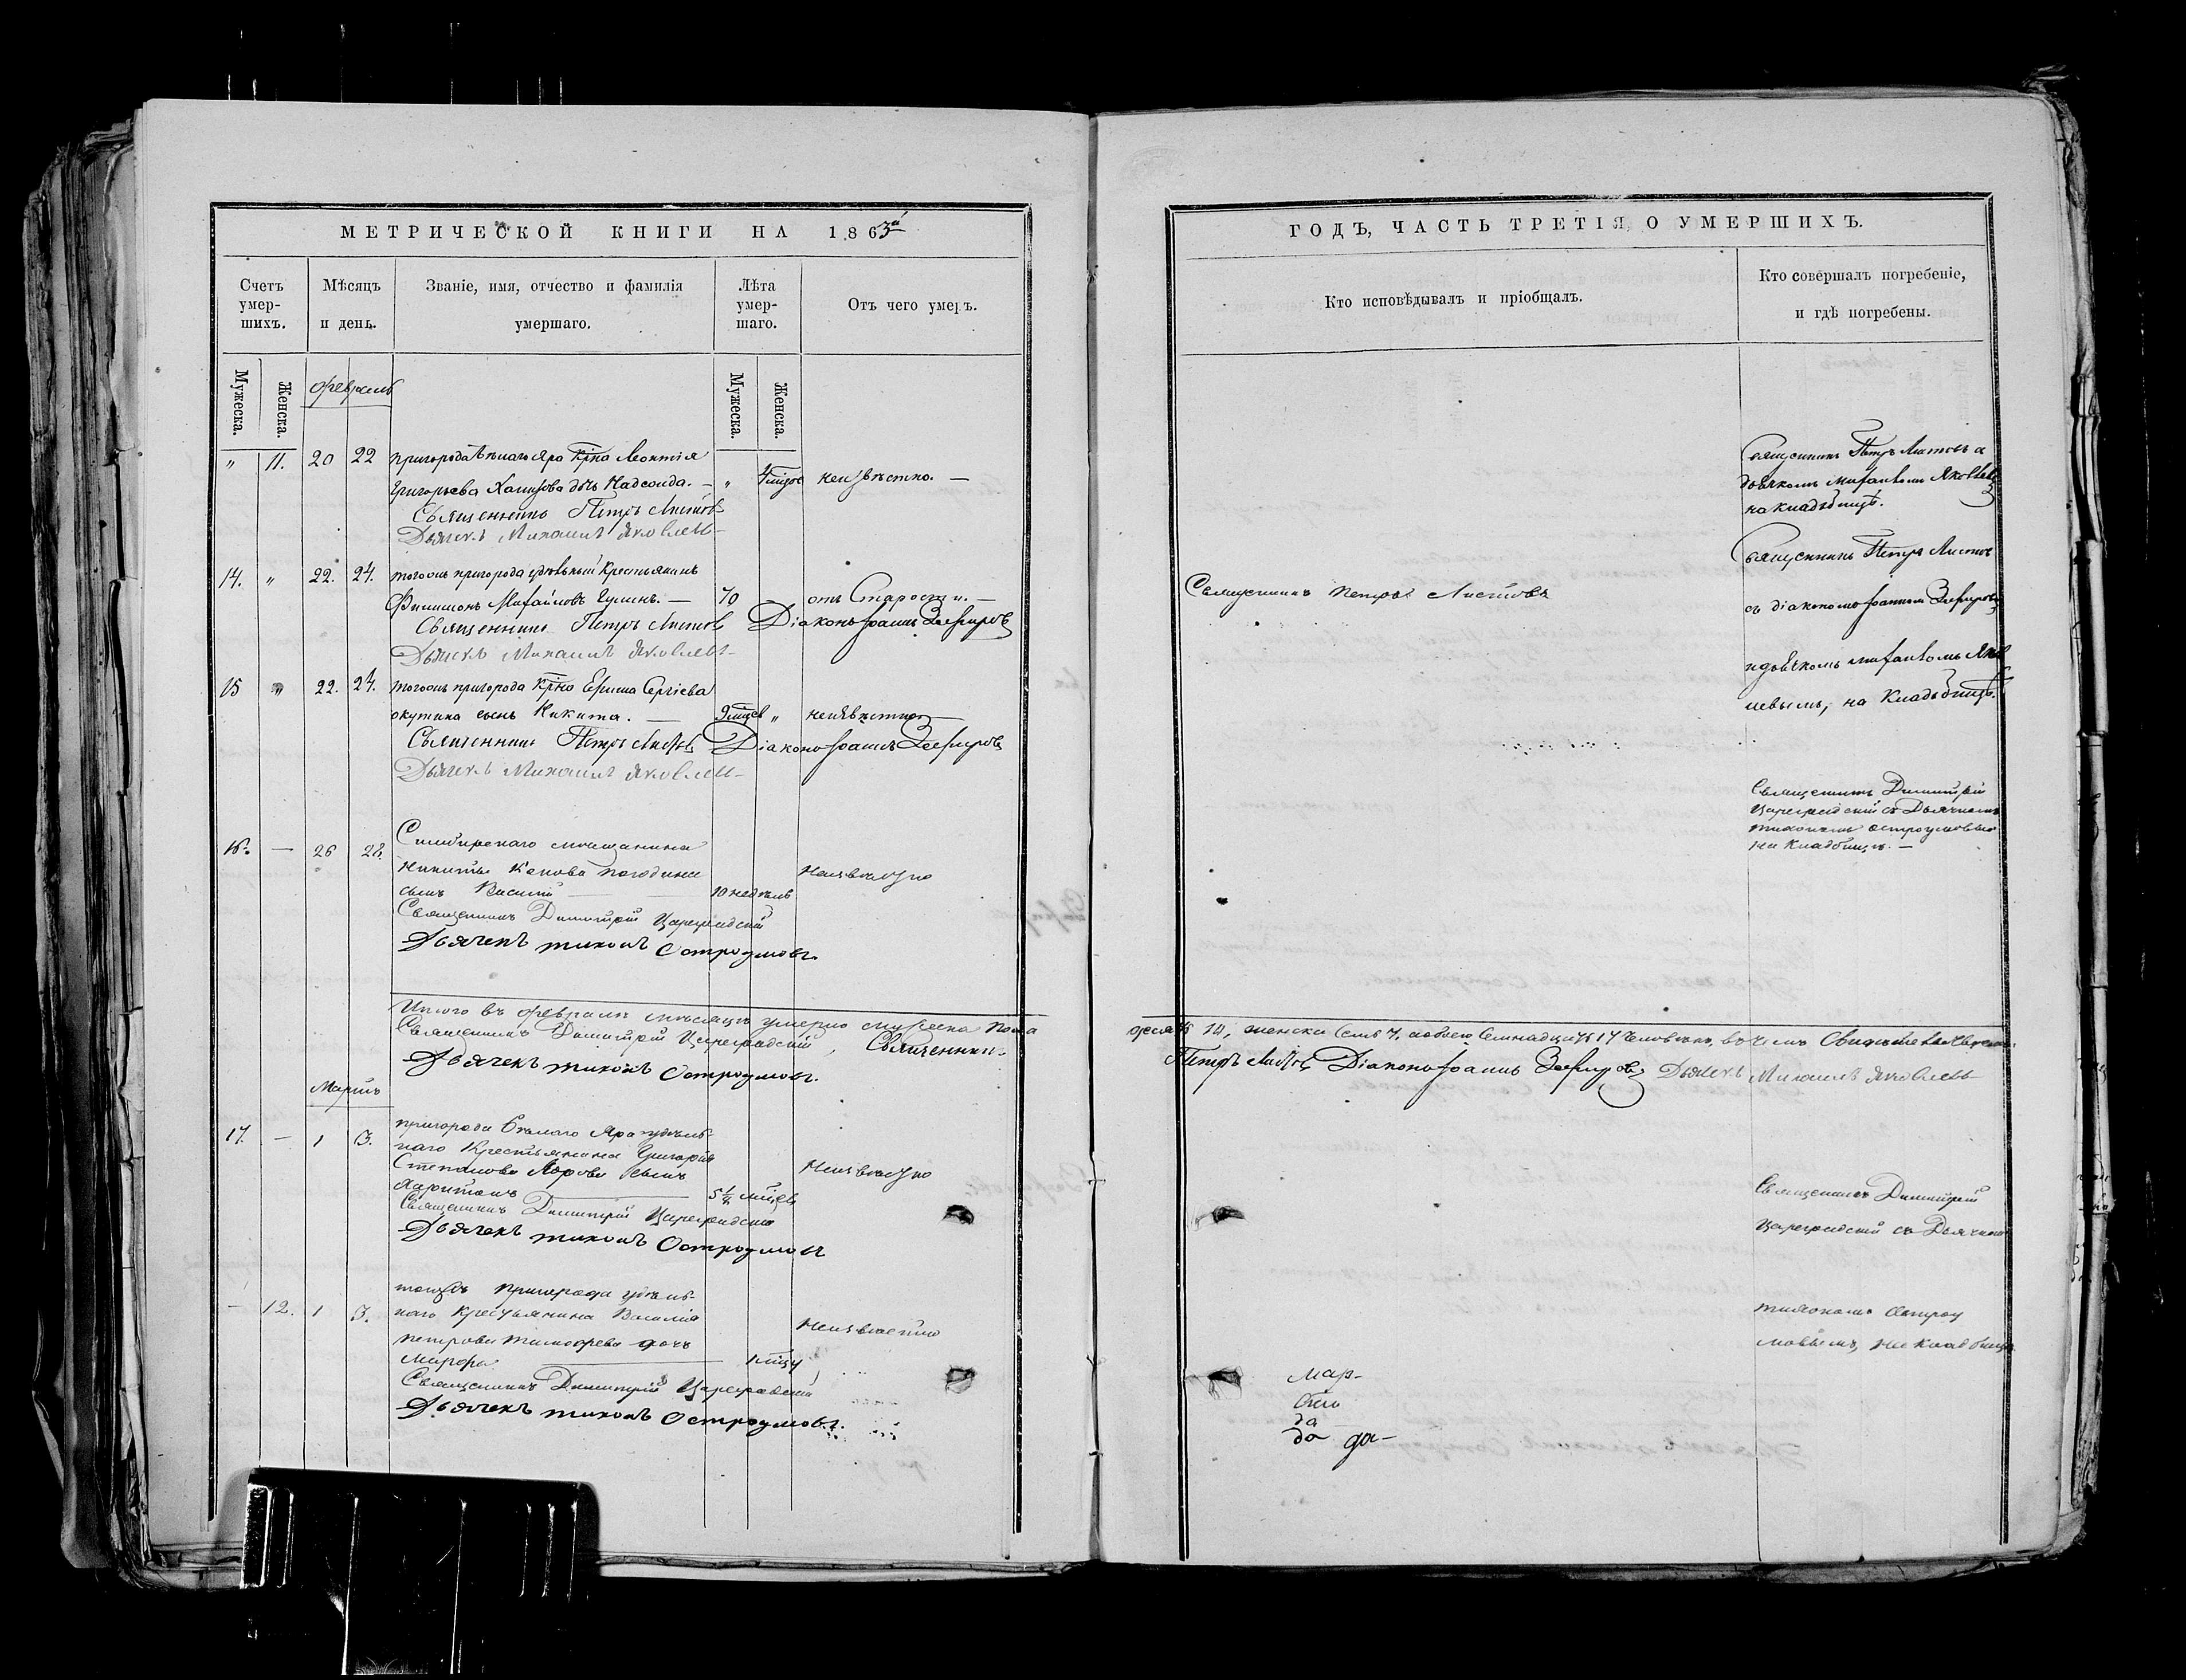 МЕТРИЧЕСКОЙ КНИГИ НА 1863й
Счетъ умер-шихъ.
Мѣсяцъ и день.
Званіе, имя, отчество и фамилія умершаго.
Лѣта умер-шаго.
Отъ чего умеръ.
Мужеска.
Женска.
Февраль
Мужеска.
Женска.
" 11. 20 22 пригорода Бѣлаго Яра Крна Леонтія
Григорьева дочь " неизвѣстно. —
Священникъ Петръ Листовъ
Дьячекъ Михаилъ Яковлевъ
14. " 22. 24. тогожъ пригорода удѣльный Крестьянинъ
Филимонъ Михайловъ — 70 отъ Старости. —
Священникъ Петръ Листовъ Діаконъ Іоаннъ Зефировъ
Дьячекъ Михаилъ Яковлевъ
15 " 22. 24. тогожъ пригорода Крна Сергіева
окутина сынъ Никита. — 9 мцев " неизвѣстно —
Священникъ Петръ Листовъ Діаконъ Іоаннъ Зефировъ
Дьячекъ Михаилъ Яковлевъ
16. — 26 28. Симбирскаго мѣщанина
Никиты погодина Неизвѣстно
сынъ Василій — 10 недѣль
Священникъ Димитрій Цареградскій
Дьячекъ тихонъ Остроумовъ.
Итого въ Февралѣ мѣсяцѣ умерло мужеска пола
Священникъ Димитрій Цареградскій, Священникъ
Дьячекъ тихонъ Остроумовъ.
Мартъ
17. — 1 3. пригорода Бѣлаго Яра удѣль-
наго Крестьянина Григорія
Степанова сынъ Неизвѣстно
Харитонъ — 5 ½ мцев
Священникъ Димитрій Цареградскій
Дьячекъ тихонъ Остроумовъ
— 12. 1 3. тогожъ пригорода удѣль-
наго Крестьянина Василія
петрова тимофеева дочь Неизвѣстно
Марфа — 1 мцъ
Священникъ Димитрій Цареградскій
Дьячекъ тихонъ Остроумовъ.
ГОДЪ, ЧАСТЬ ТРЕТІЯ, О УМЕРШИХЪ.
Кто исповѣдывалъ и пріобщалъ.
Кто совершалъ погребеніе,
и гдѣ погребены.
Священникъ Петръ Листовъ с
дьячкомъ михаиломъ Яковлев
на кладбищѣ.
Священникъ Петръ Листовъ
Священникъ петръ Листовъ
съ діакономъ Іоанномъ Зефировы
и дьячкомъ михаиломъ Яков
левымъ, на Кладбищѣ.
Священникъ Димитрій
Цареградскій съ Дьячкомъ
тихономъ остроумовымъ
на Кладбищѣ. —
десять 10, женска семь 7, а обоего Семнадцать 17 Человѣкъ, въ чемъ
Петръ Листовъ Діаконъ Іоаннъ Зефировъ Дьячекъ Михаилъ Яковлевъ
Священникъ Димитрій
Цареградскій съ Дьячкомъ
тихономъ Остроу
мовымъ, на кладбищѣ
Мар-
да
да да-